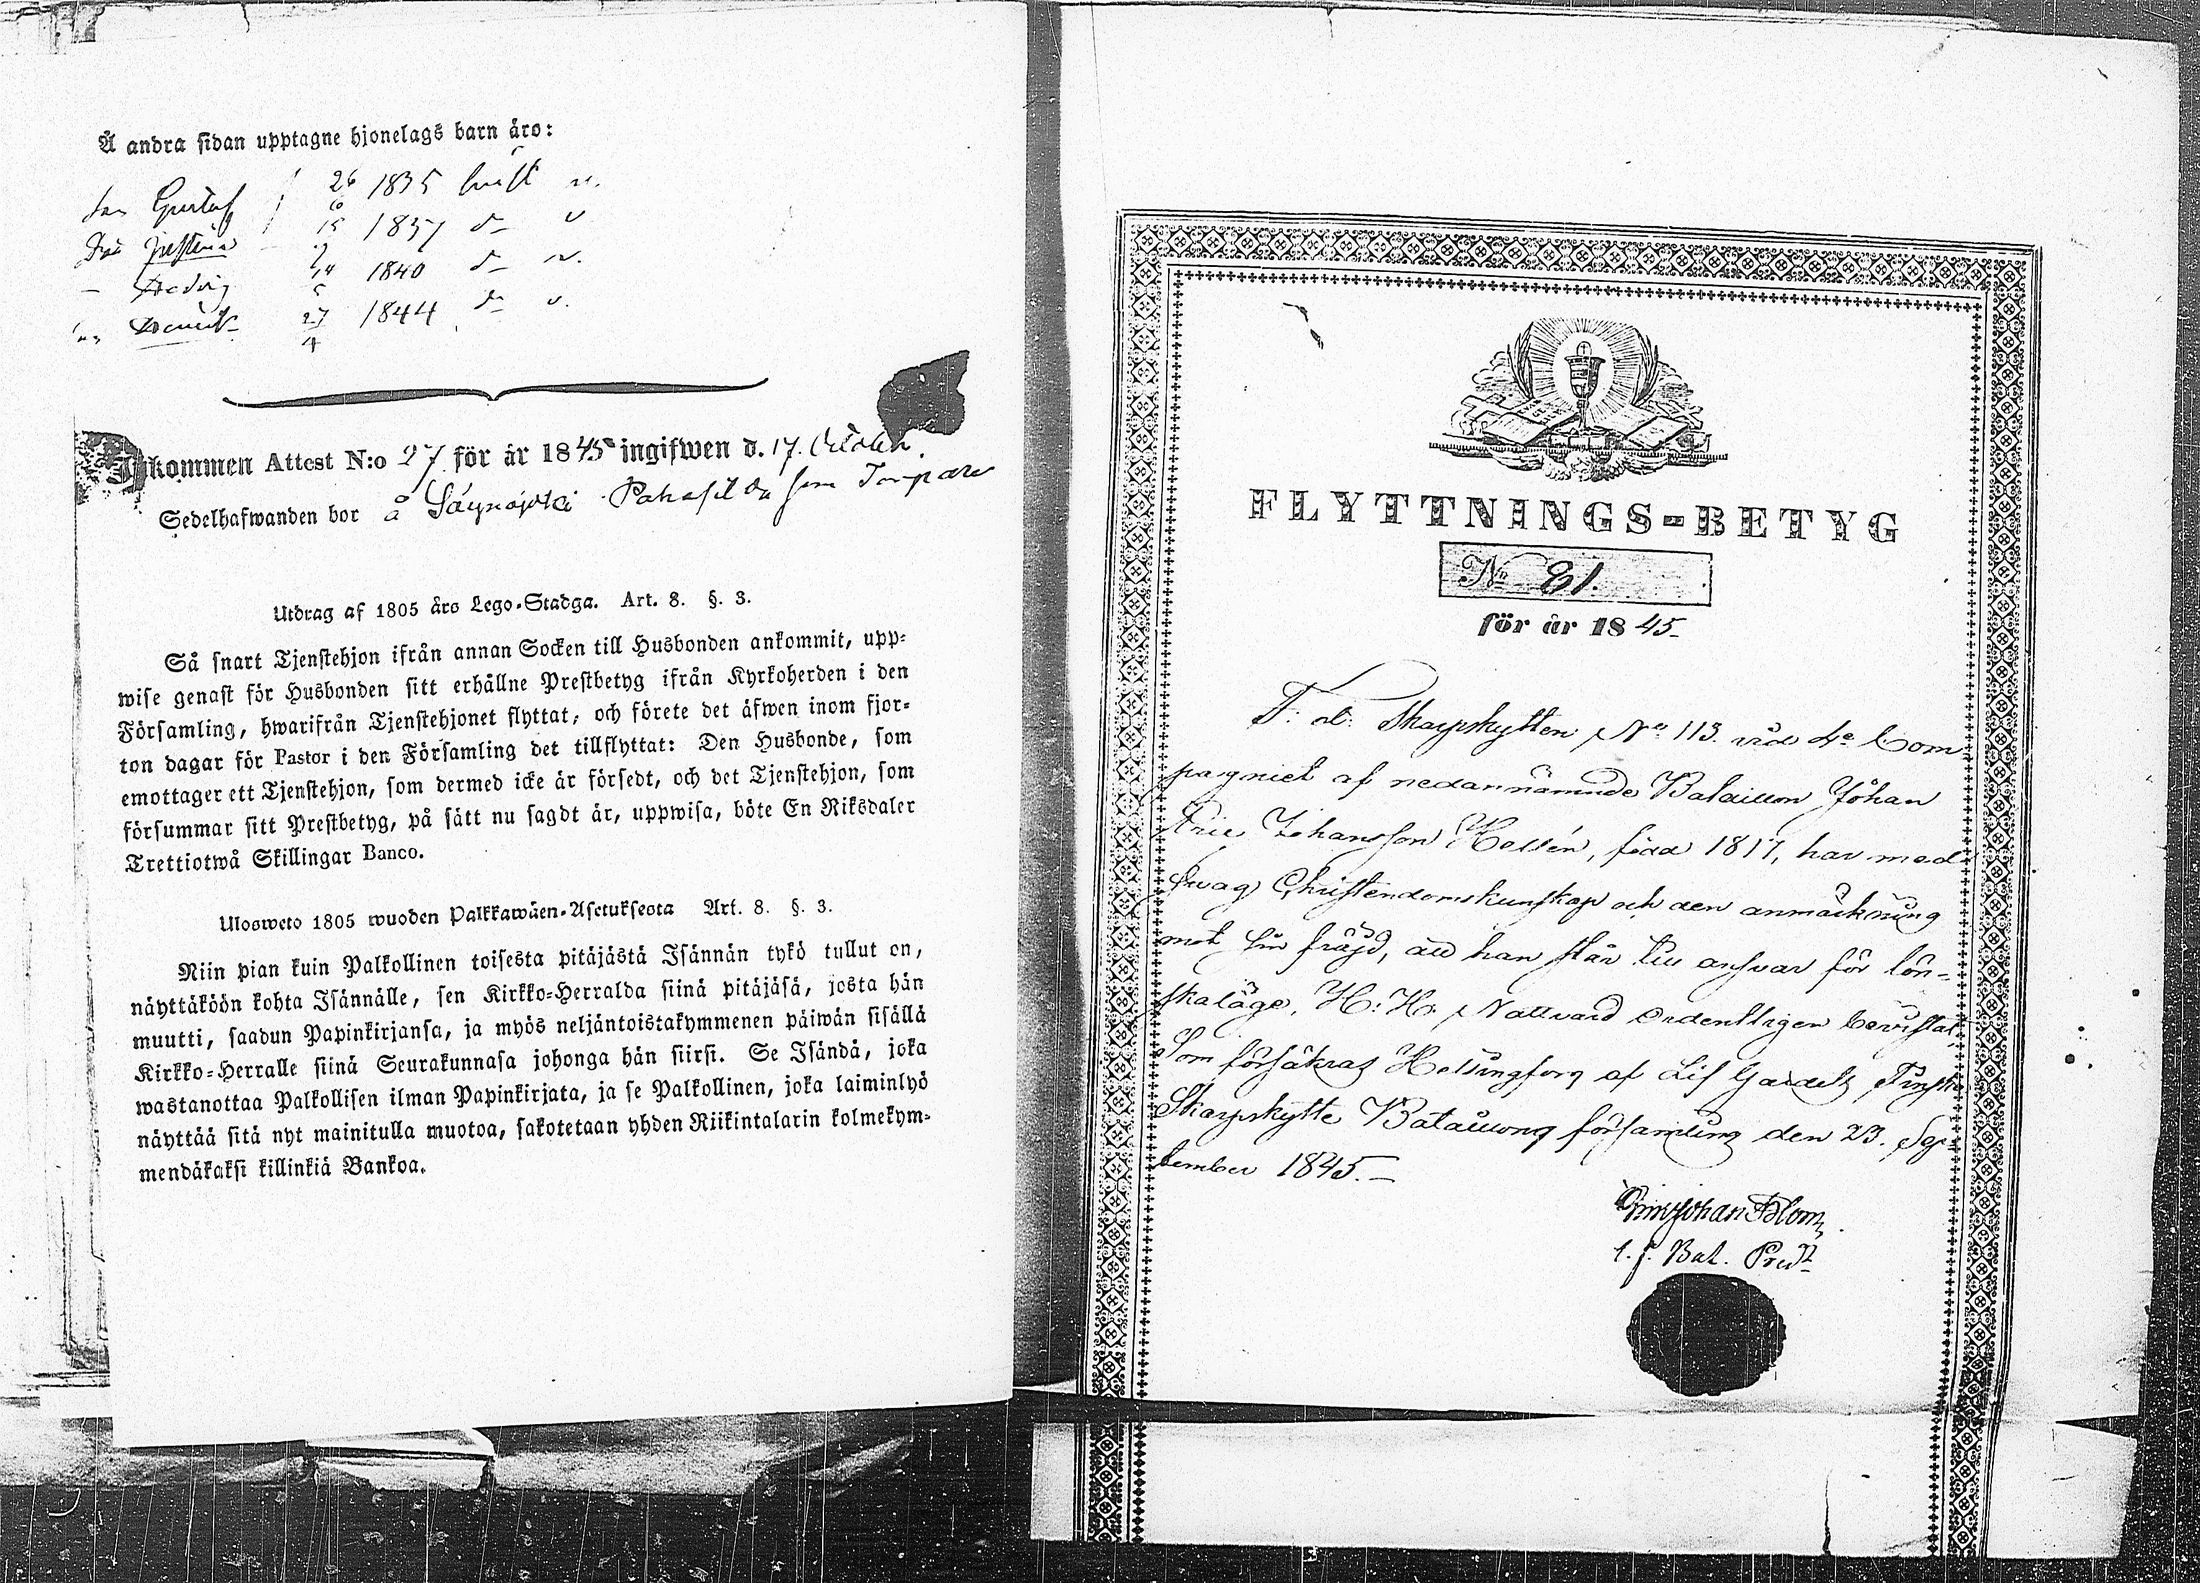 Å andra sidan upptagne hjonelags barn äro:
Gustaf 26 1835 n.
15 1837 d– v
– Hedvig 14 1840 d– v.
Henrik 27 1844 d– v.
4
Inkommen Attest N:o 27 för år 1845 ingifwen d. 17. October.
Sedelhafwanden bor å Säynäjoki som
Utdrag af 1805 års Lego-Stadga. Art. 8. §. 3.
Så snart Tjenstehjon ifrån annan Socken till Husbonden ankommit, upp-
wise genast för Husbonden sitt erhållne Prestbetyg ifrån Kyrkoherden i den
Församling, hwarifrån Tjenstehjonet flyttat, och förete det äfwen inom fjor-
ton dagar för Pastor i den Församling det tillflyttat: Den Husbonde, som
emottager ett Tjenstehjon, som dermed icke är försedt, och det Tjenstehjon, som
försummar sitt Prestbetyg, på sätt nu sagdt är, uppwisa, böte En Riksdaler
Trettiotwå Skillingar Banco.
Ulosweto 1805 wuoden Palkkawäen-Asetuksesta Art. 8. §. 3.
Niin pian kuin Palkollinen toisesta pitäjästä Isännän tykö tullut on,
näyttäköön kohta Isännälle, sen Kirkko-Herralda siinä pitäjäsä, josta hän
muutti, saadun Papinkirjansa, ja myös neljäntoistakymmenen päiwän sisällä
Kirkko-Herralle siinä Seurakunnasa johonga hän siirsi. Se Isändä, joka
wastanottaa Palkollisen ilman Papinkirjata, ja se Palkollinen, joka laiminlyö
näyttää sitä nyt mainitulla muotoa, sakotetaan yhden Riikintalarin kolmekym-
mendäkaksi killinkiä Bankoa.
FLYTTNINGS-BETYG
No 81.
för år 1845
F. d. Skarpskytten No 113. vid 4e Com-
pagniet af nedannämnde Bataillon Johan
Eric Johansson Hellén, född 1817, har med
swag Christendomskunskap och den anmärkning
mot sin frägd, att han står till answar för lön-
skaläge, H. H. Nattvard ordentligen bevistat,
Som försäkras Helsingfors af Lif Gardets Finska
Skarpskytte Bataillons församling den 23. Sep-
tember 1845.–
Johan Blom,
t. f. Bat. Pred.